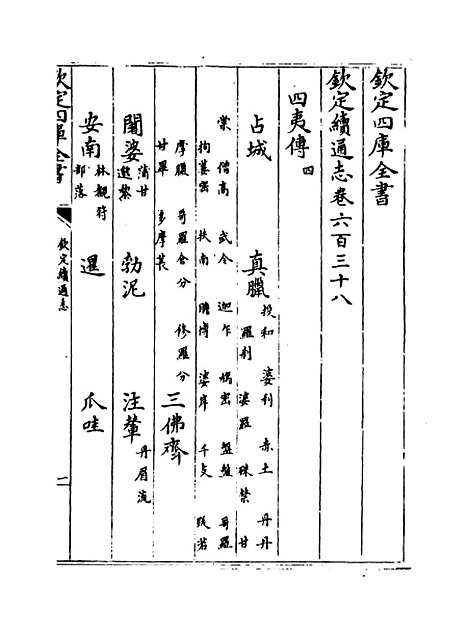 欽定四庫全書
欽定續通志卷六百三十八
四夷傳四
占城 真臘 投和 婆利 赤土 丹丹 羅刹 婆羅 殊柰 甘
棠 僧高 武令 迦乍 鳩密 盤盤 哥羅
拘蔞密 扶南 瞻博 婆岸 千支 跋若
摩臘 哥羅舍分 修羅分
甘畢 多摩萇 三佛齊
闍婆 蒲甘 邈黎 勃泥 注輦 丹眉流
安南 林觀符部落 暹 爪哇
欽定四庫全書
欽定續通志
一